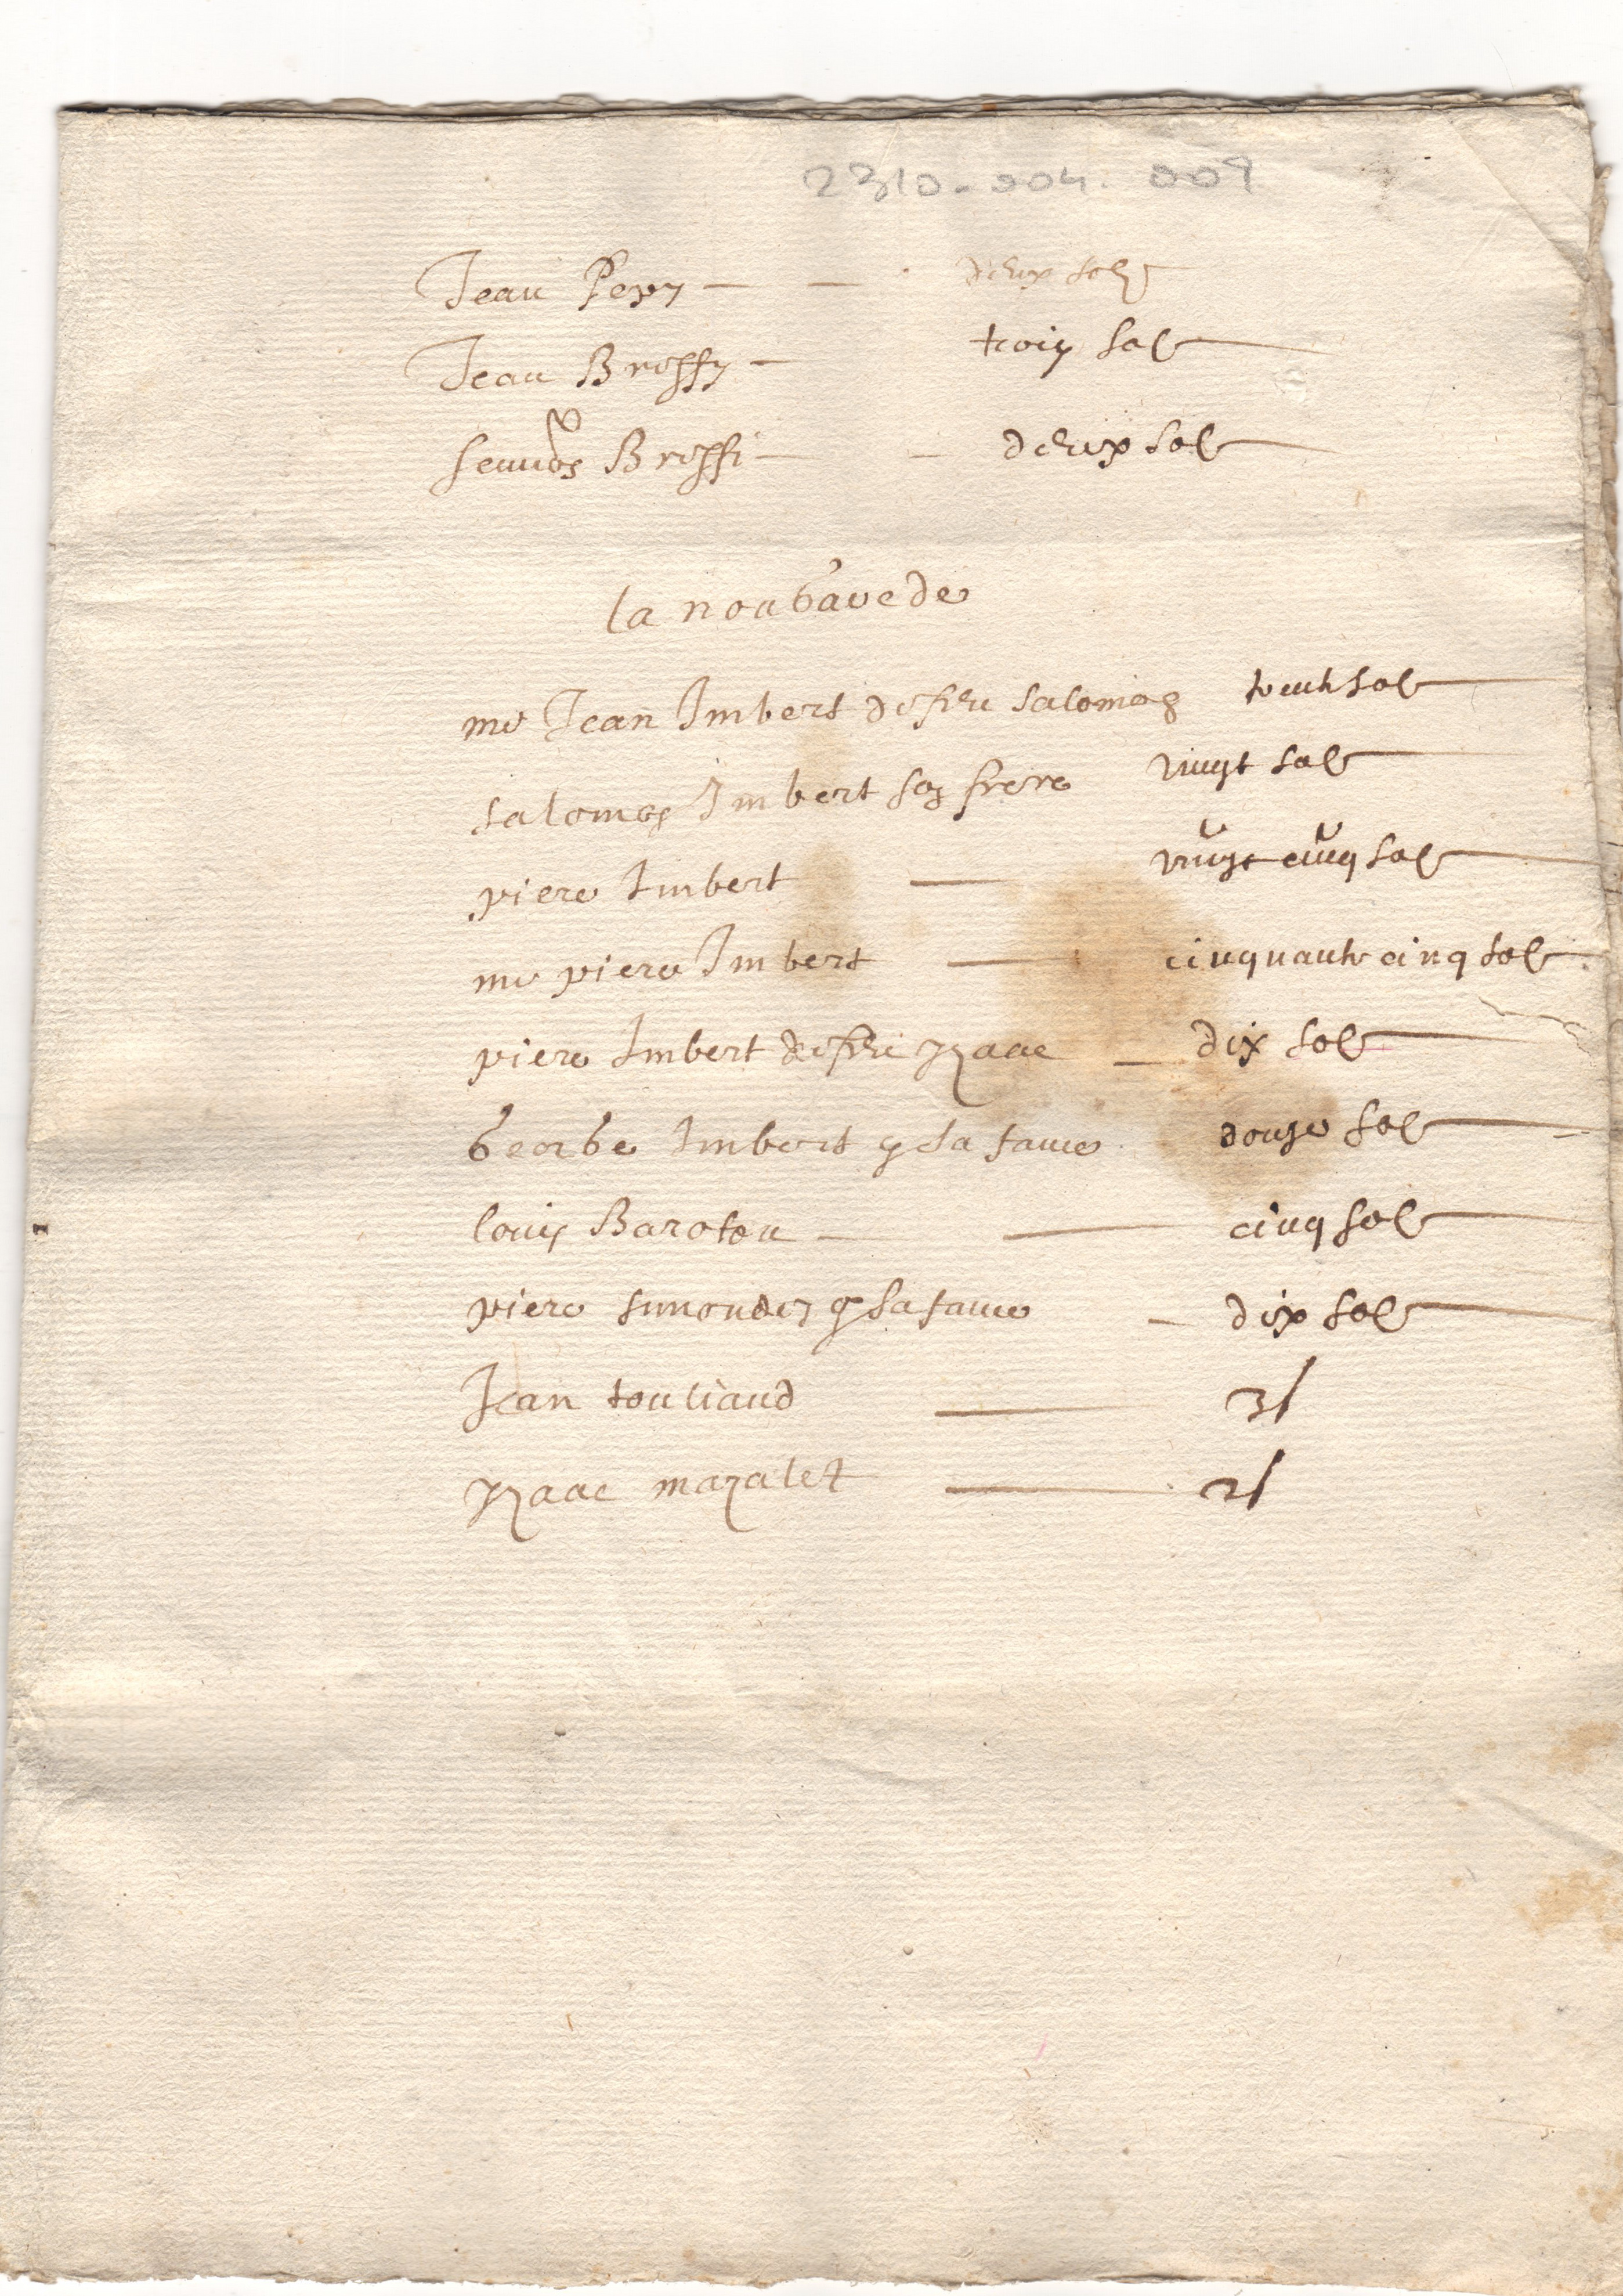 2310-004-009
Jean Pepy deux solz
Jean Broffy trois sol
Broffi deux sol
la nougarede
me Jean Imbert de feu salomon trente sol
salomon Imbert son frere vingt sol
piere Imbert vingt cinq sol
me piere Imbert cinquante cinq sol
piere Imbert de feu yzaac dix sol
george Imbert p sa fame douze sol
louis Baroteu cinq sol
piere simondez p sa fame dix sol
Jean touliaud 3 s
yzaac mazalet 2 s